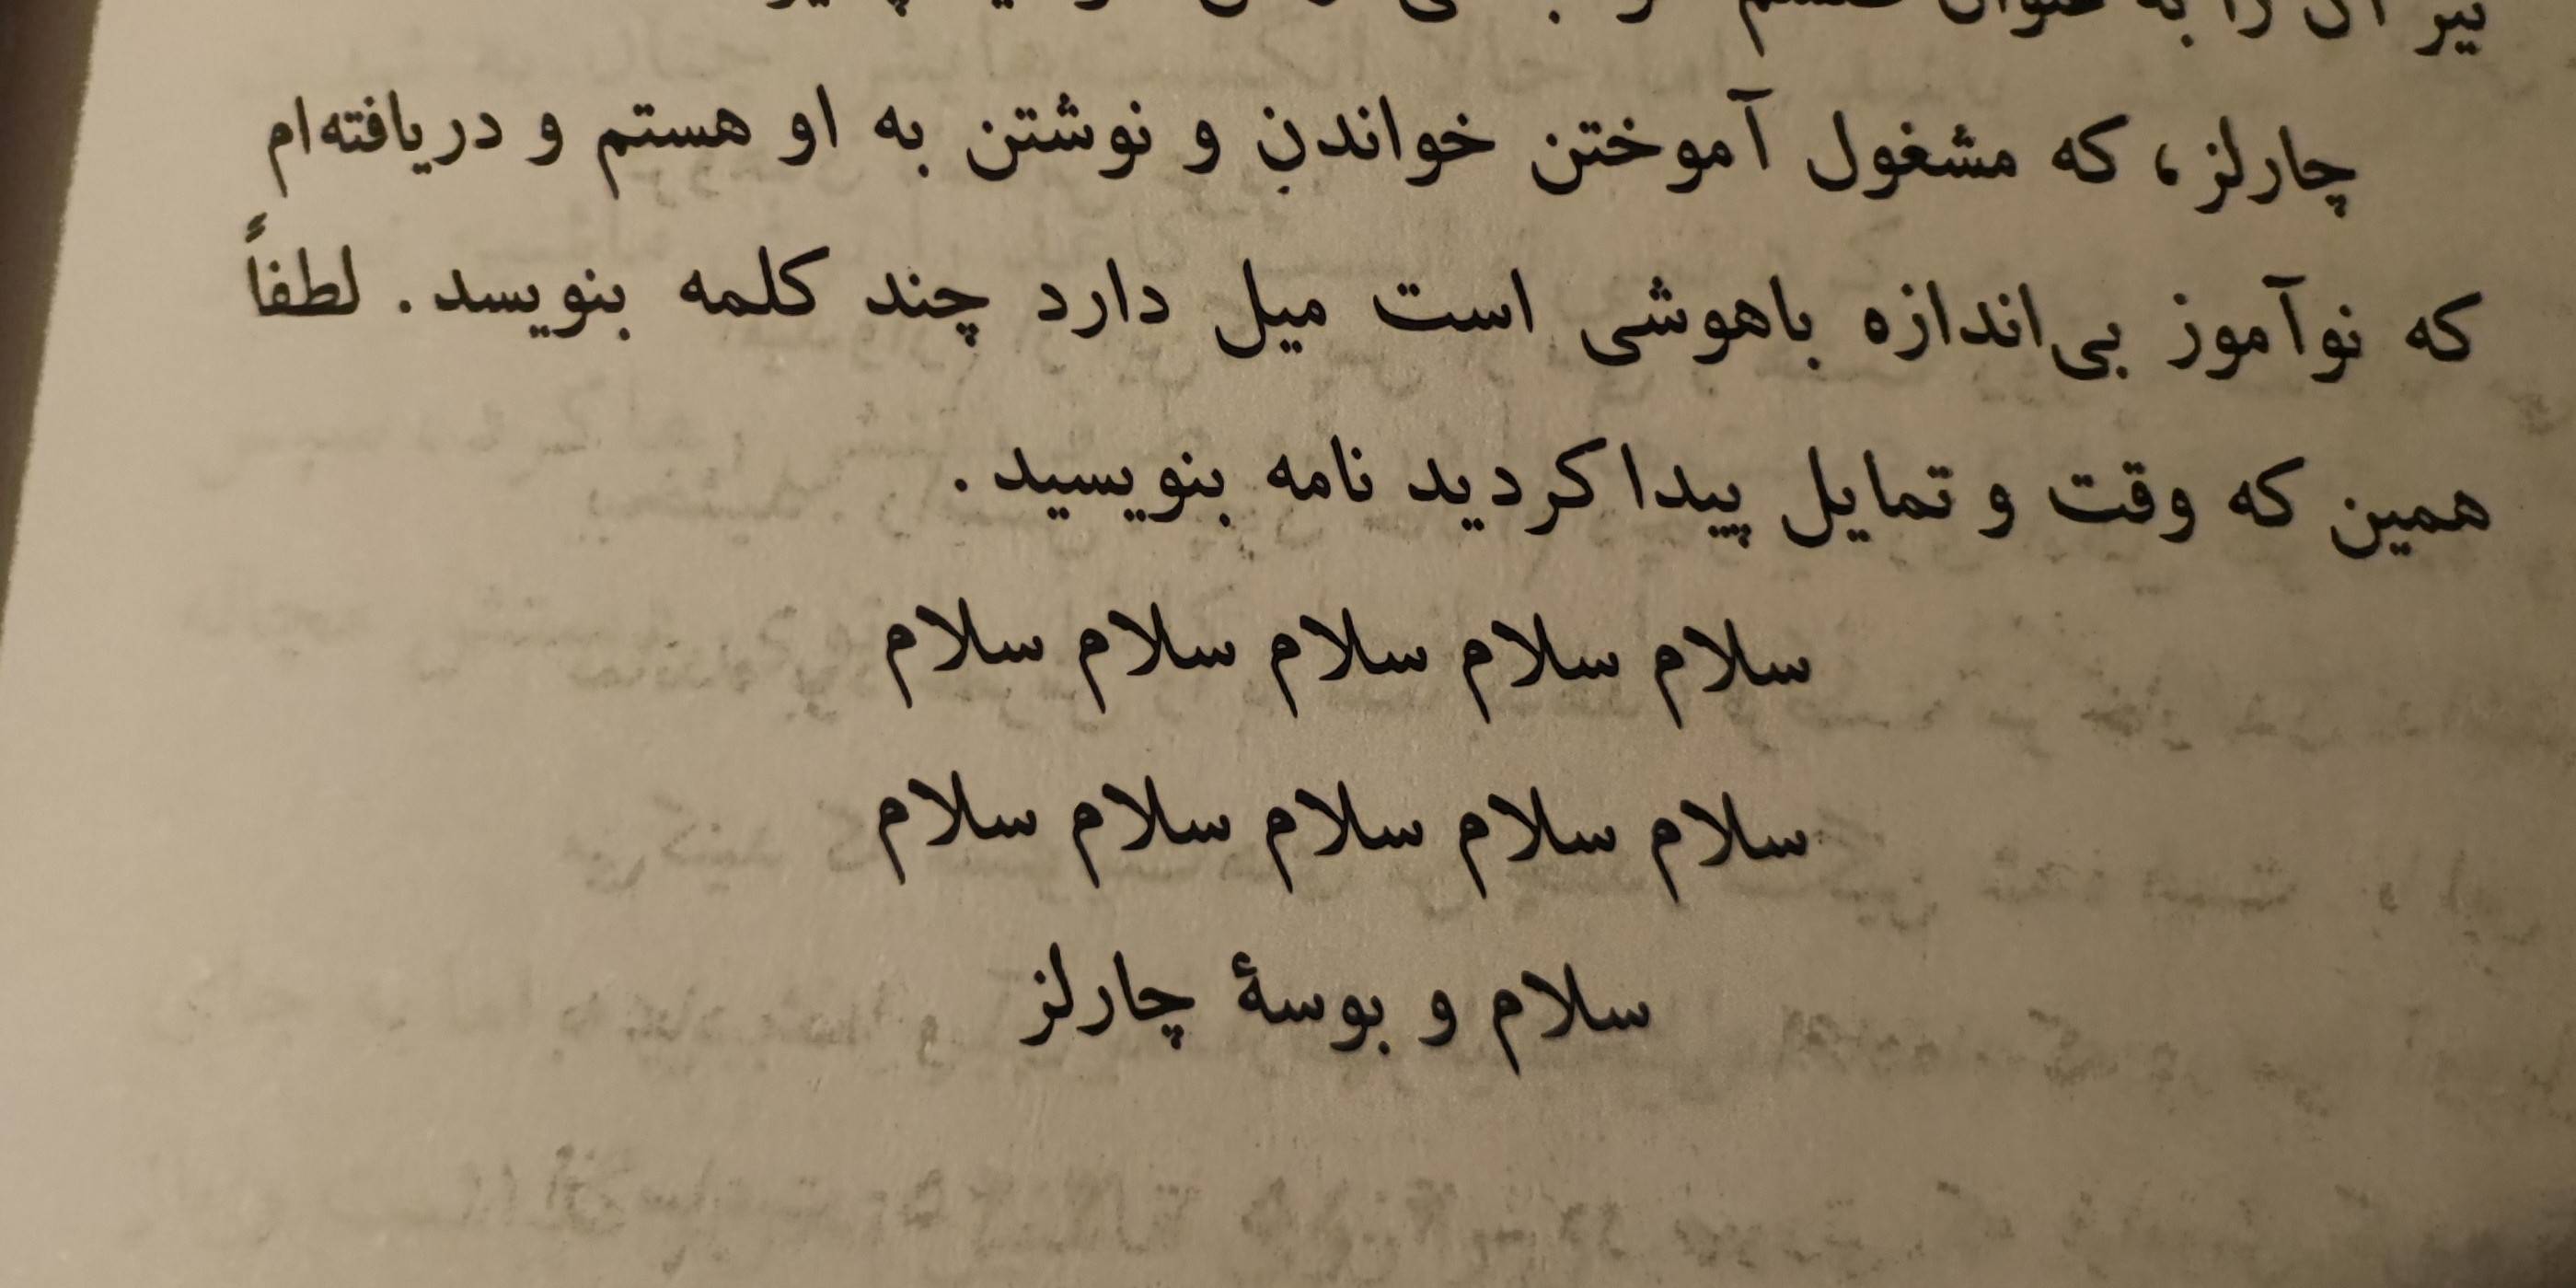 نیز آن را به عنوان
چارلز، که مشغول آموختن خواندن و نوشتن به او هستم و دریافته‌ام
که نوآموز بی‌اندازه باهوشی است میل دارد چند کلمه بنویسد. لطفاً
همین که وقت و تمایل پیدا کردید نامه بنویسید.
سلام سلام سلام سلام سلام
سلام سلام سلام سلام سلام
سلام و بوسهٔ چارلز